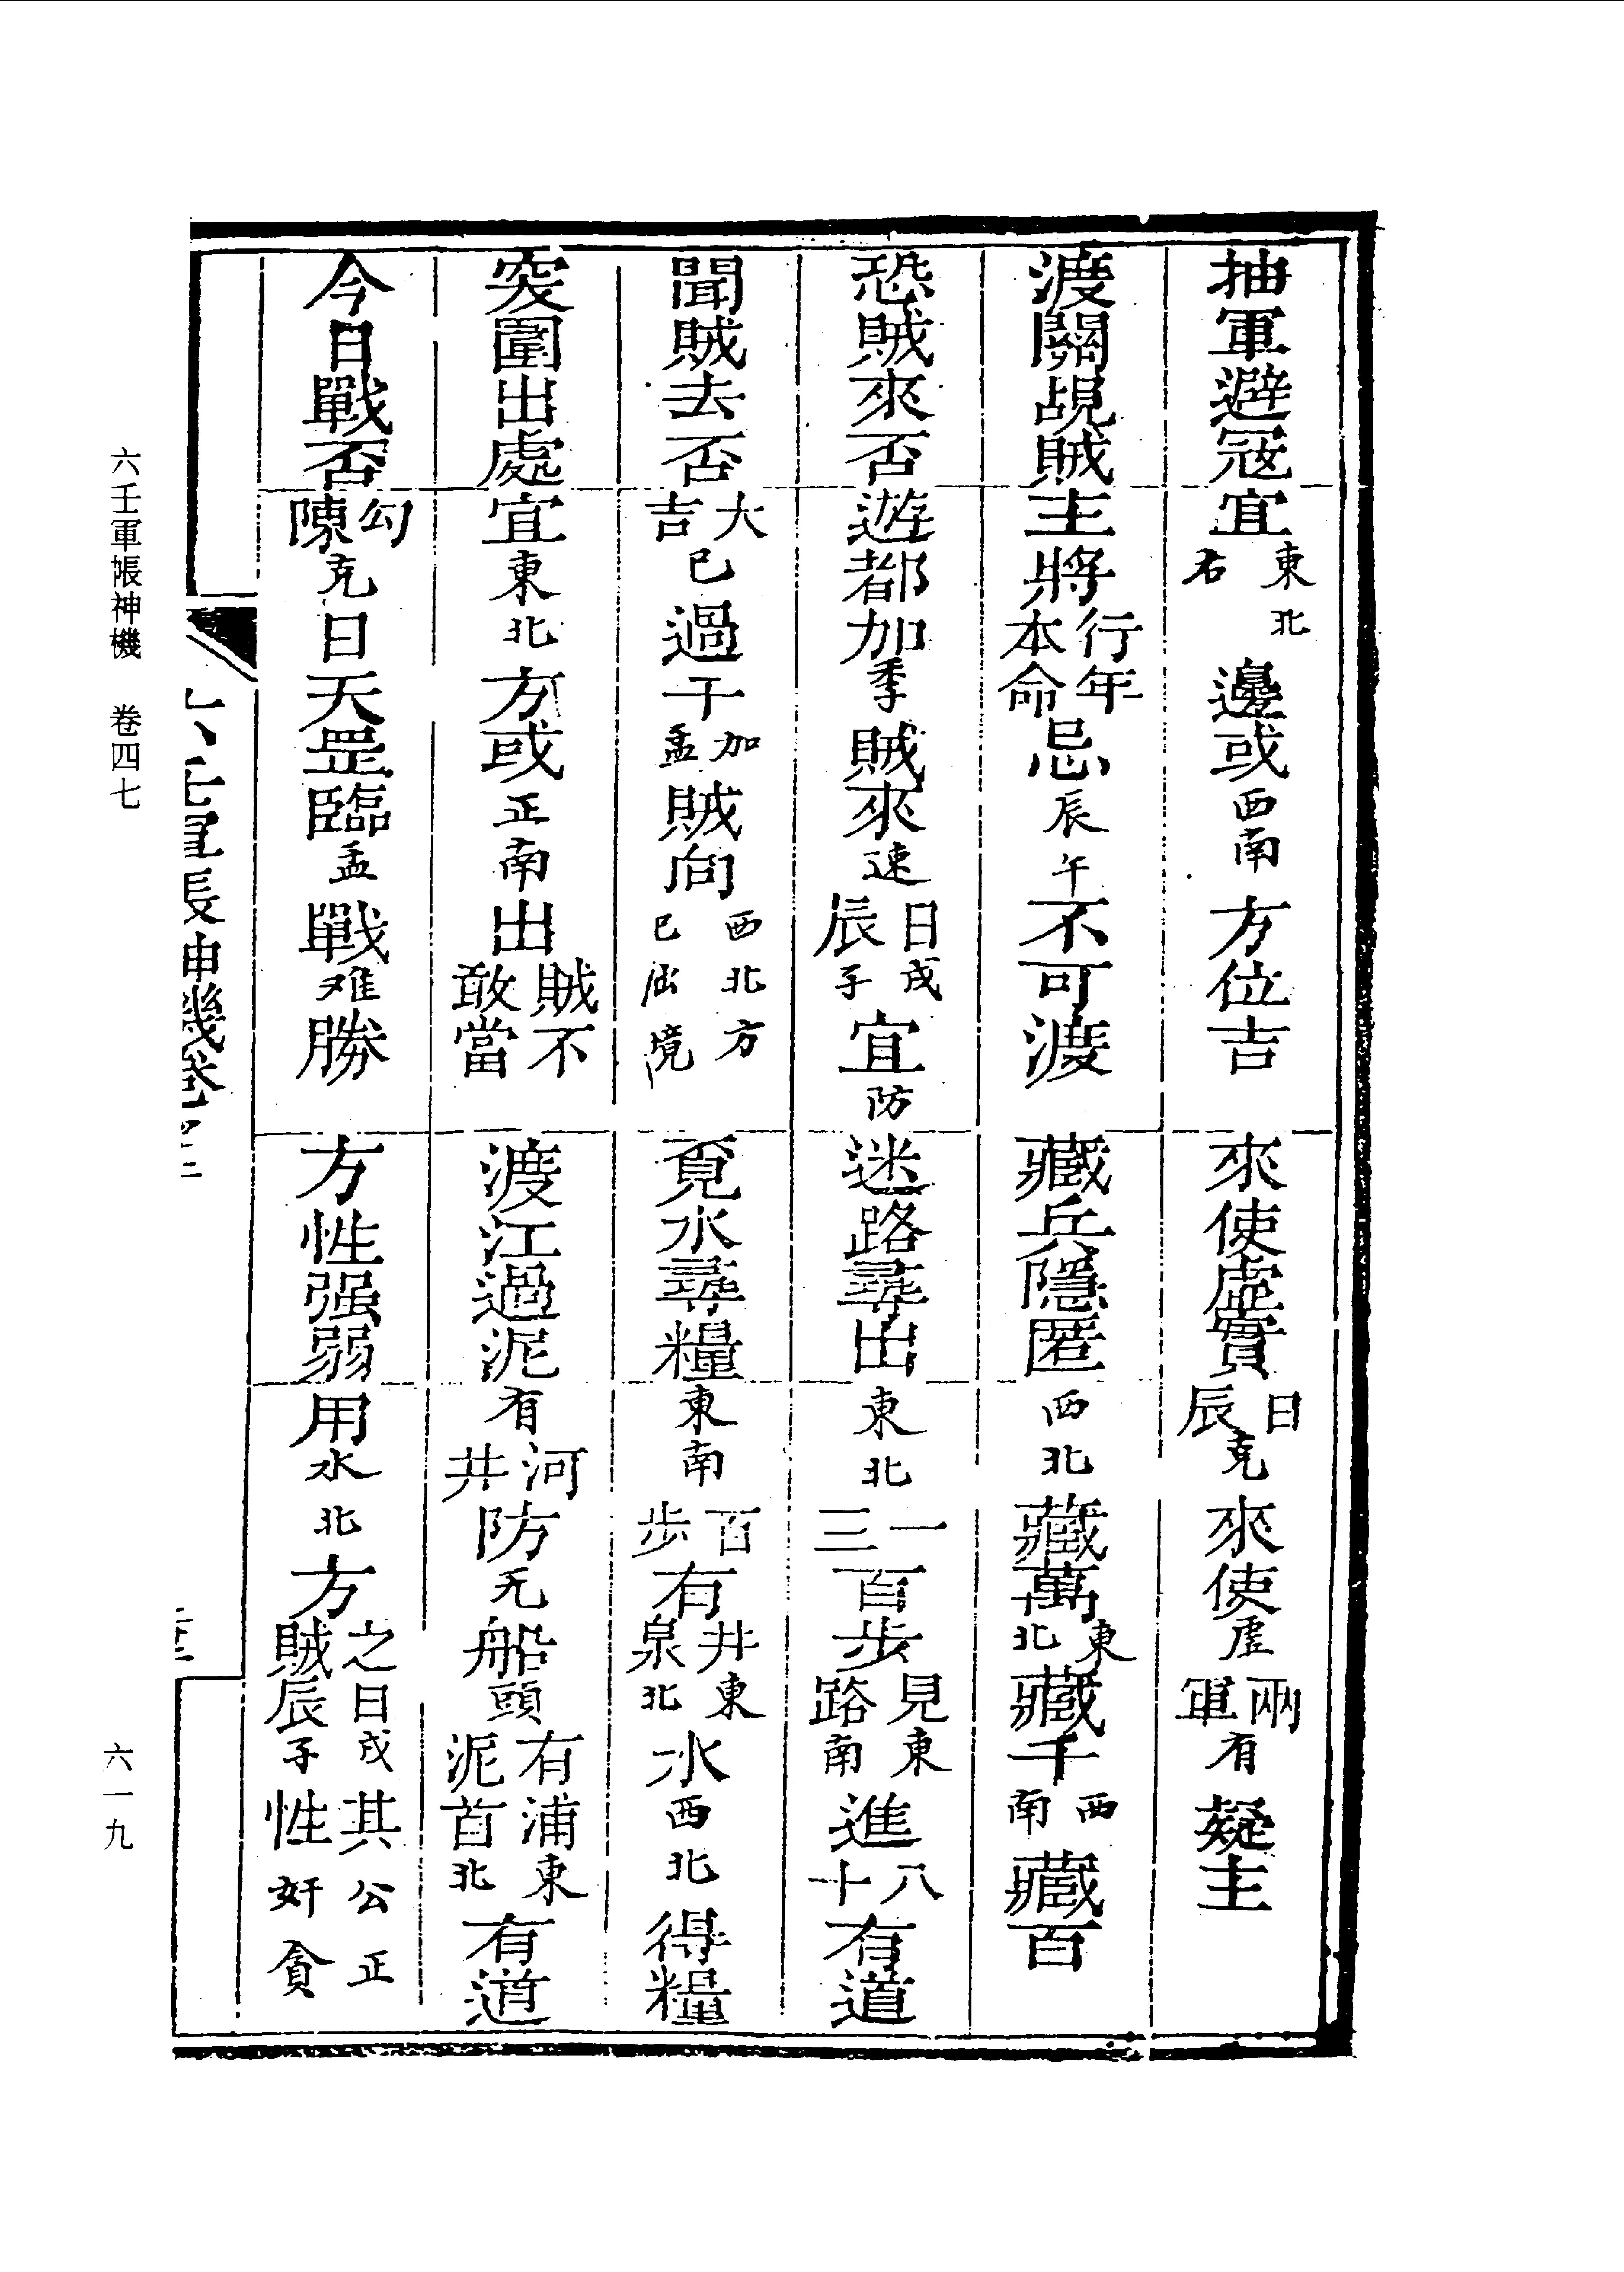 抽軍避冦宜東北右邊或西南方位吉
來使虛實日辰克來使虛兩軍有疑主
渡關覘賊主將行年本命忌辰午不可渡
藏兵隱匿西北藏萬東北藏千西南藏百
恐賊來否遊都加季賊來速日戌辰子宜防
迷路尋出東北一三百步見東路南進八十有道
聞賊去否大吉已過干加孟賊向西北方已出境
覓水尋糧東南百步有井東泉北水西北得糧
突圍出處宜東北方或正南出賊不敢當
渡江過泥有河井防无船頭有浦東泥首北有道
今日戰否勾陳克日天罡臨孟戰难勝
方性强弱用水北方之日戌賊辰子其公正性奸貪
六壬軍帳神機 卷四七
六一九